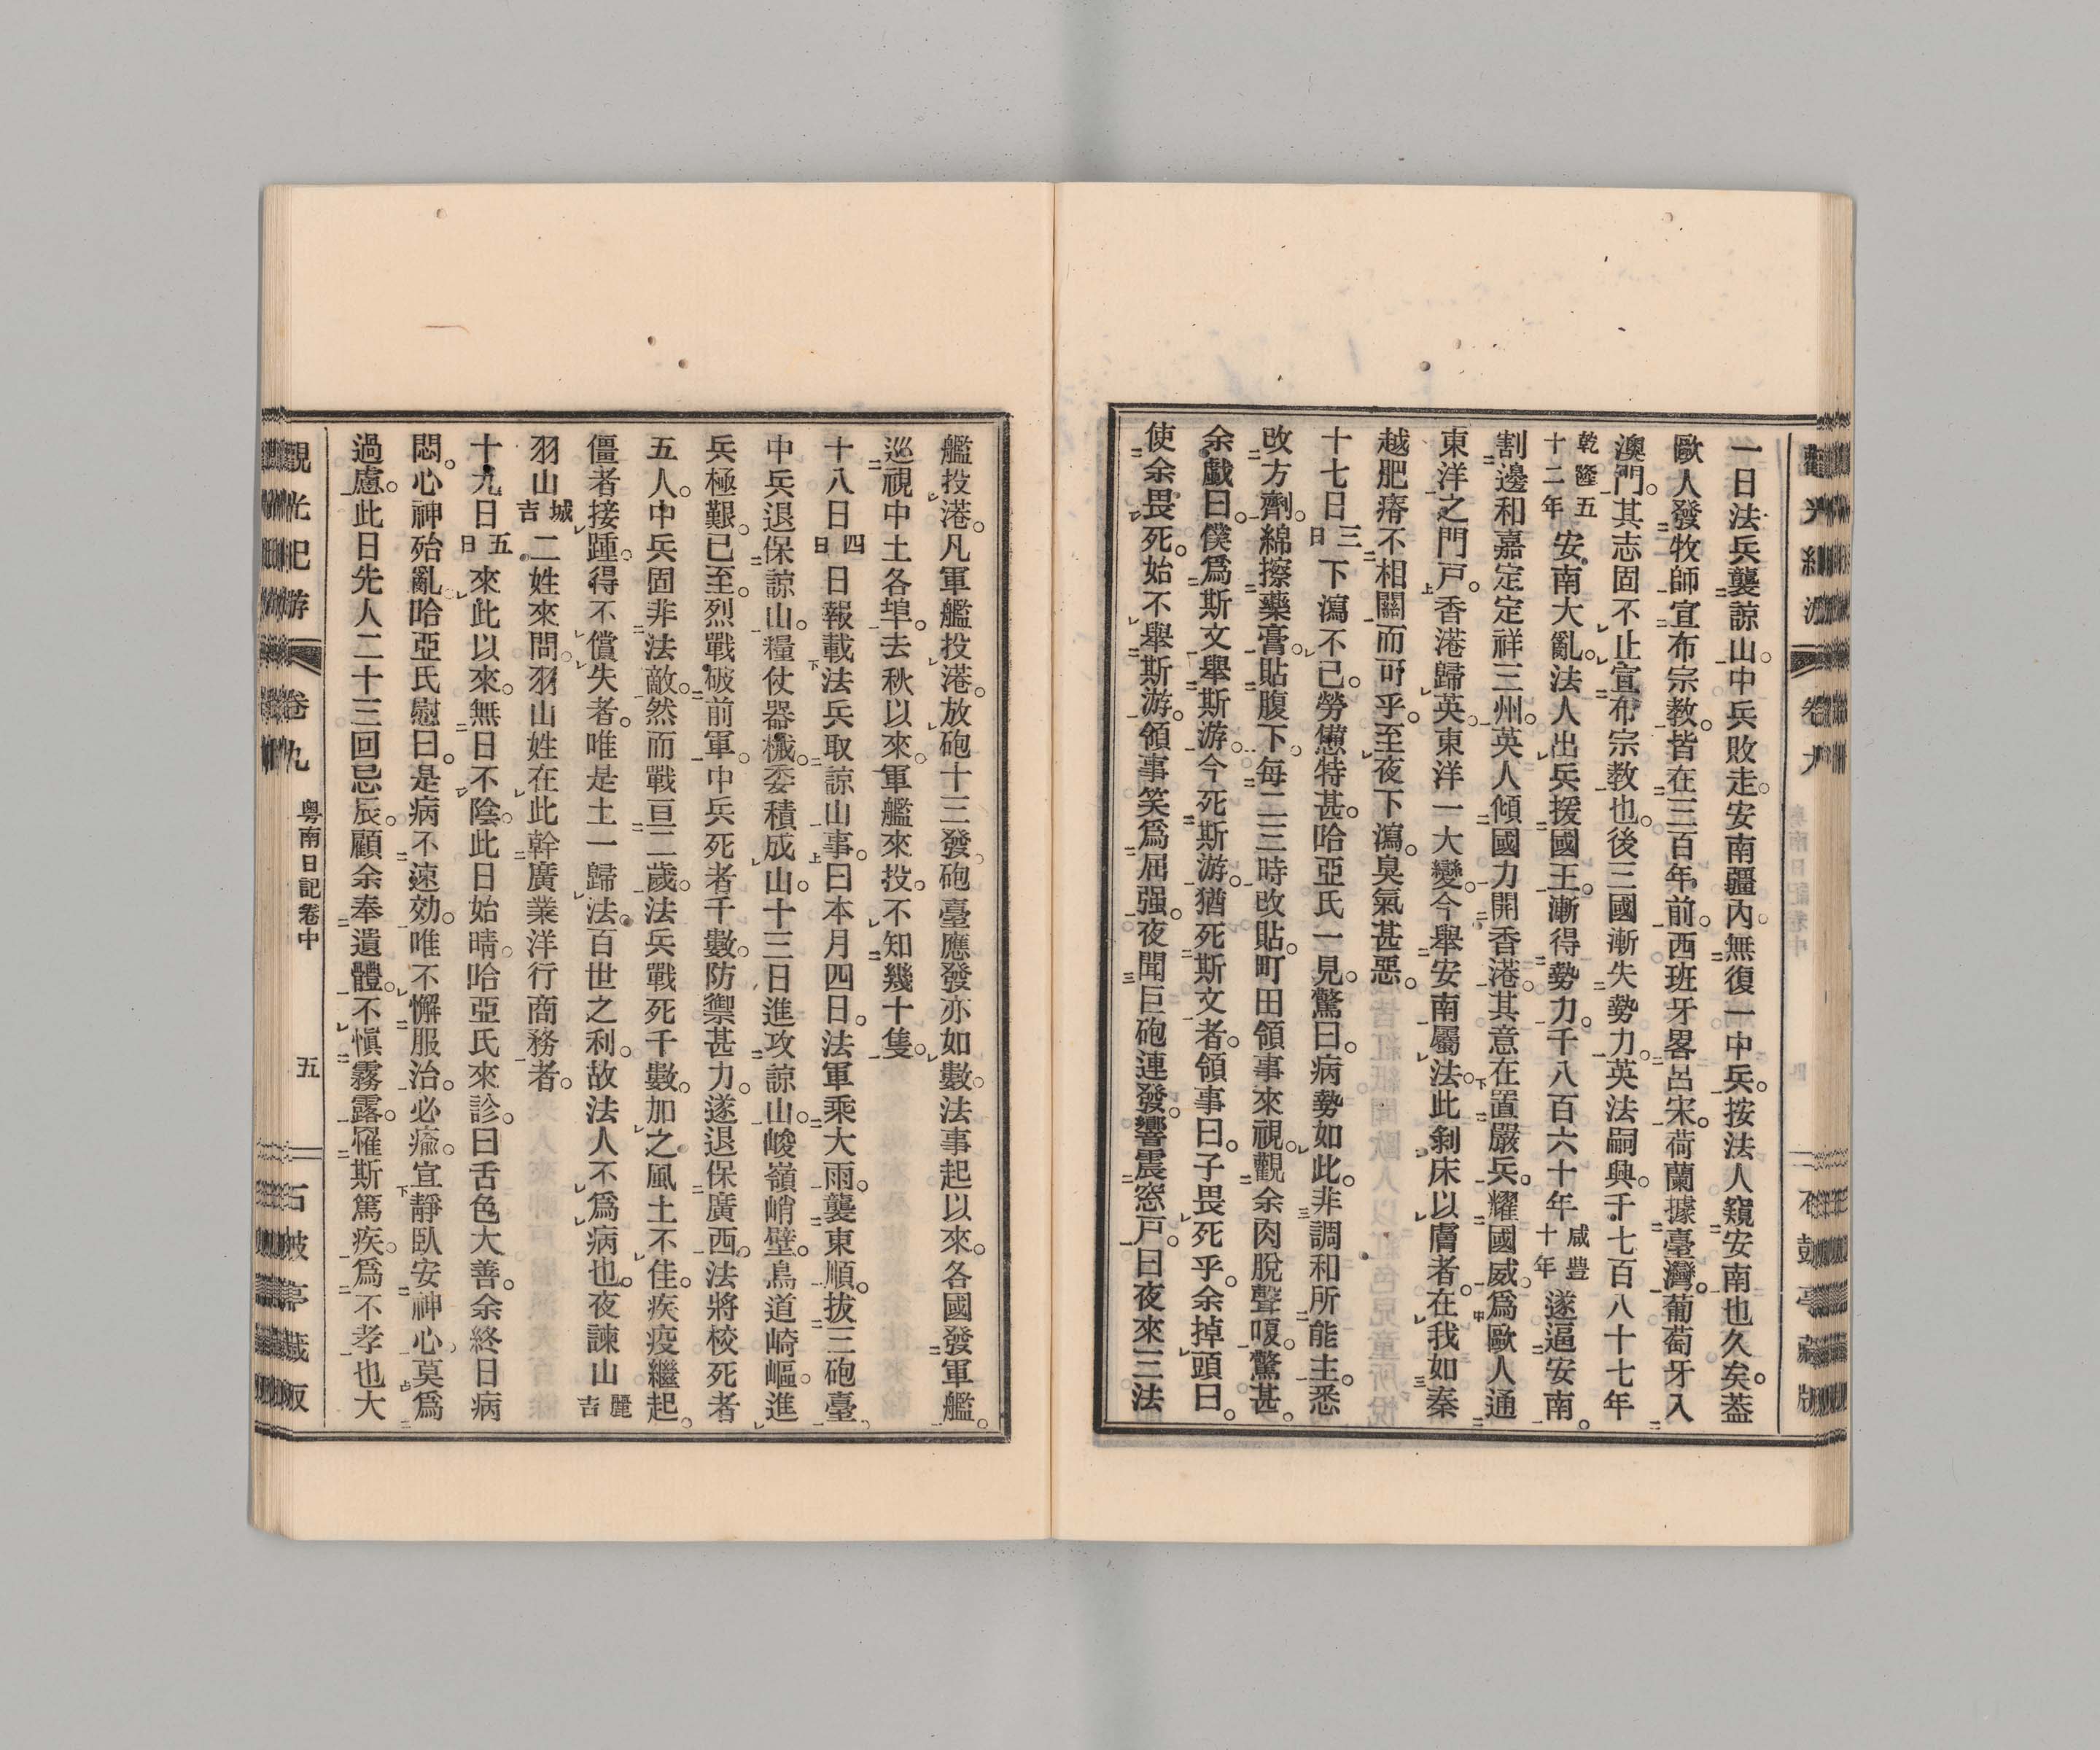 一日法兵襲諒山。中兵敗走。安南疆內。無復一中兵。按法人窺安南也久矣。葢
歐人發牧師宣布宗教。皆在三百年前。西班牙畧呂宋。荷蘭據臺灣。葡萄牙入
澳門。其志固不止宣布宗教也。後三國漸失勢力。英法嗣興。千七百八十七年
乾隆五十二年安南大亂。法人出兵援國王。漸得勢力。千八百六十年咸豐十年遂逼安南。
割邊和嘉定定祥三州。英人傾國力開香港。其意在置嚴兵。耀國威。爲歐人通
東洋之門戶。香港歸英。東洋一大變。今舉安南屬法。此剝床以膚者。在我如秦
越肥瘠不相關而可乎。至夜下瀉。臭氣甚惡。
十七日三日下瀉不已。勞憊特甚。哈亞氏一見。驚曰。病勢如此。非調和所能主。悉
改方劑。綿擦藥膏。貼腹下。每二三時改貼。町田領事來視。觀余肉脫聲嗄。驚甚。
余戲曰。僕爲斯文舉斯游。今死斯游。猶死斯文者。領事曰。子畏死乎。余掉頭曰。
使余畏死。始不舉斯游。領事笑爲屈强。夜聞巨砲連發。響震窓戶。曰夜來三法
艦投港。凡軍艦投港。放砲十三發。砲臺應發亦如數。法事起以來。各國發軍艦。
巡視中土各埠。去秋以來。軍艦來投。不知幾十隻。
十八日四日日報載法兵取諒山事。曰本月四日。法軍乘大雨。襲東順。拔三砲臺。
中兵退保諒山。糧仗器械。委積成山。十三日進攻諒山。峻嶺峭壁。鳥道崎嶇。進
兵極艱。已至。烈戰破前軍。中兵死者千數。防禦甚力。遂退保廣西。法將校死者
五人。中兵固非法敵。然而戰亘二歲。法兵戰死千數。加之風土不佳。疾疫繼起。
僵者接踵。得不償失者。唯是土一歸法。百世之利。故法人不爲病也。夜諫山麗吉
羽山城吉二姓來問。羽山姓在此幹廣業洋行商務者。
十九日五日來此以來。無日不陰。此日始晴。哈亞氏來診。曰舌色大善。余終日病
悶。心神殆亂。哈亞氏慰曰。是病不速効。唯不懈服治。必瘉。宜靜臥安神心。莫爲
過慮。此日先人二十三回忌辰。顧余奉遺體。不愼霧露。罹斯篤疾。爲不孝也大
觀光紀游
卷九
粤南日記卷中
五